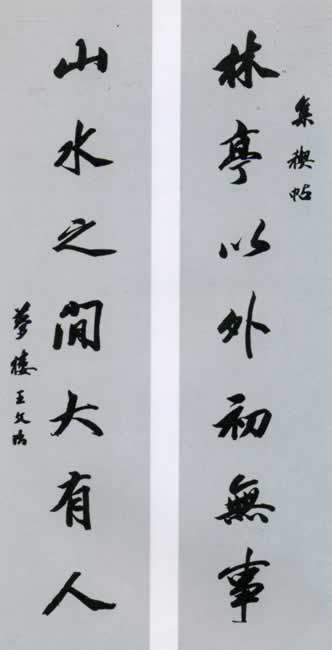 集禊帖
林亭以外初無事
山水之間大有人
夢樓王文治